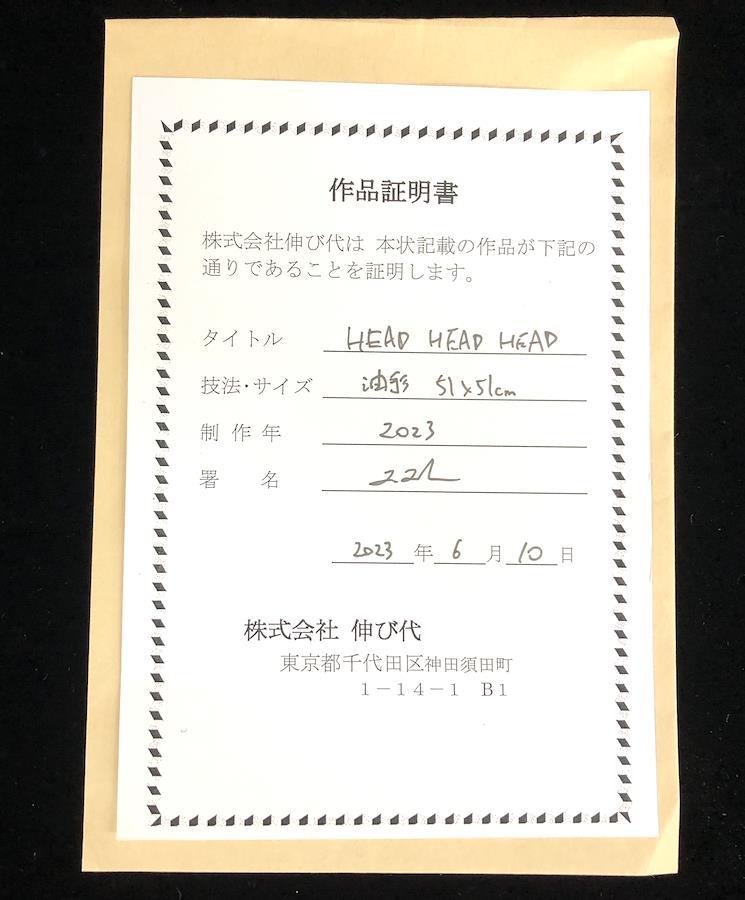 作品証明書
株式会社伸び代は 本状記載の作品が下記の
通りであることを証明します。
タイトル HEAD HEAD HEAD
技法・サイズ 油彩 51x51cm
制作年 2023
署名
2023年6月10日
株式会社 伸び代
東京都千代田区神田須田町
1－14－1 B1